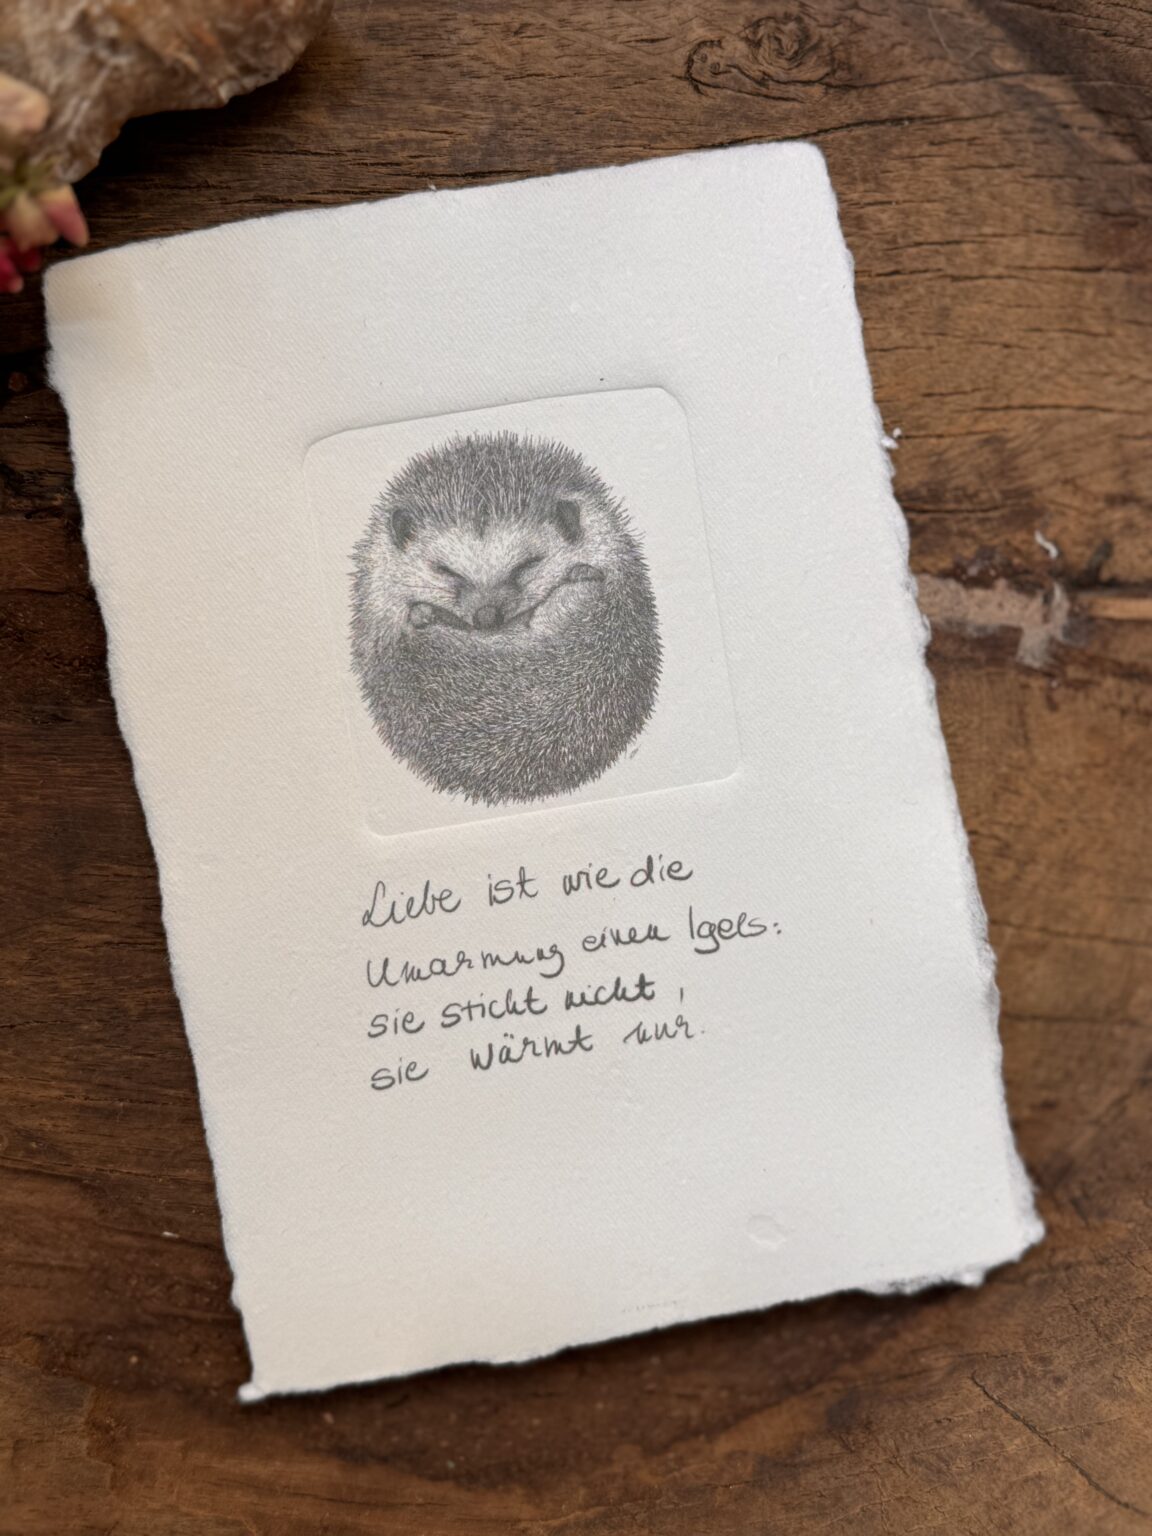 Liebe ist wie die
Umarmung einen Igels:
sie sticht nicht,
sie wärmt nur.